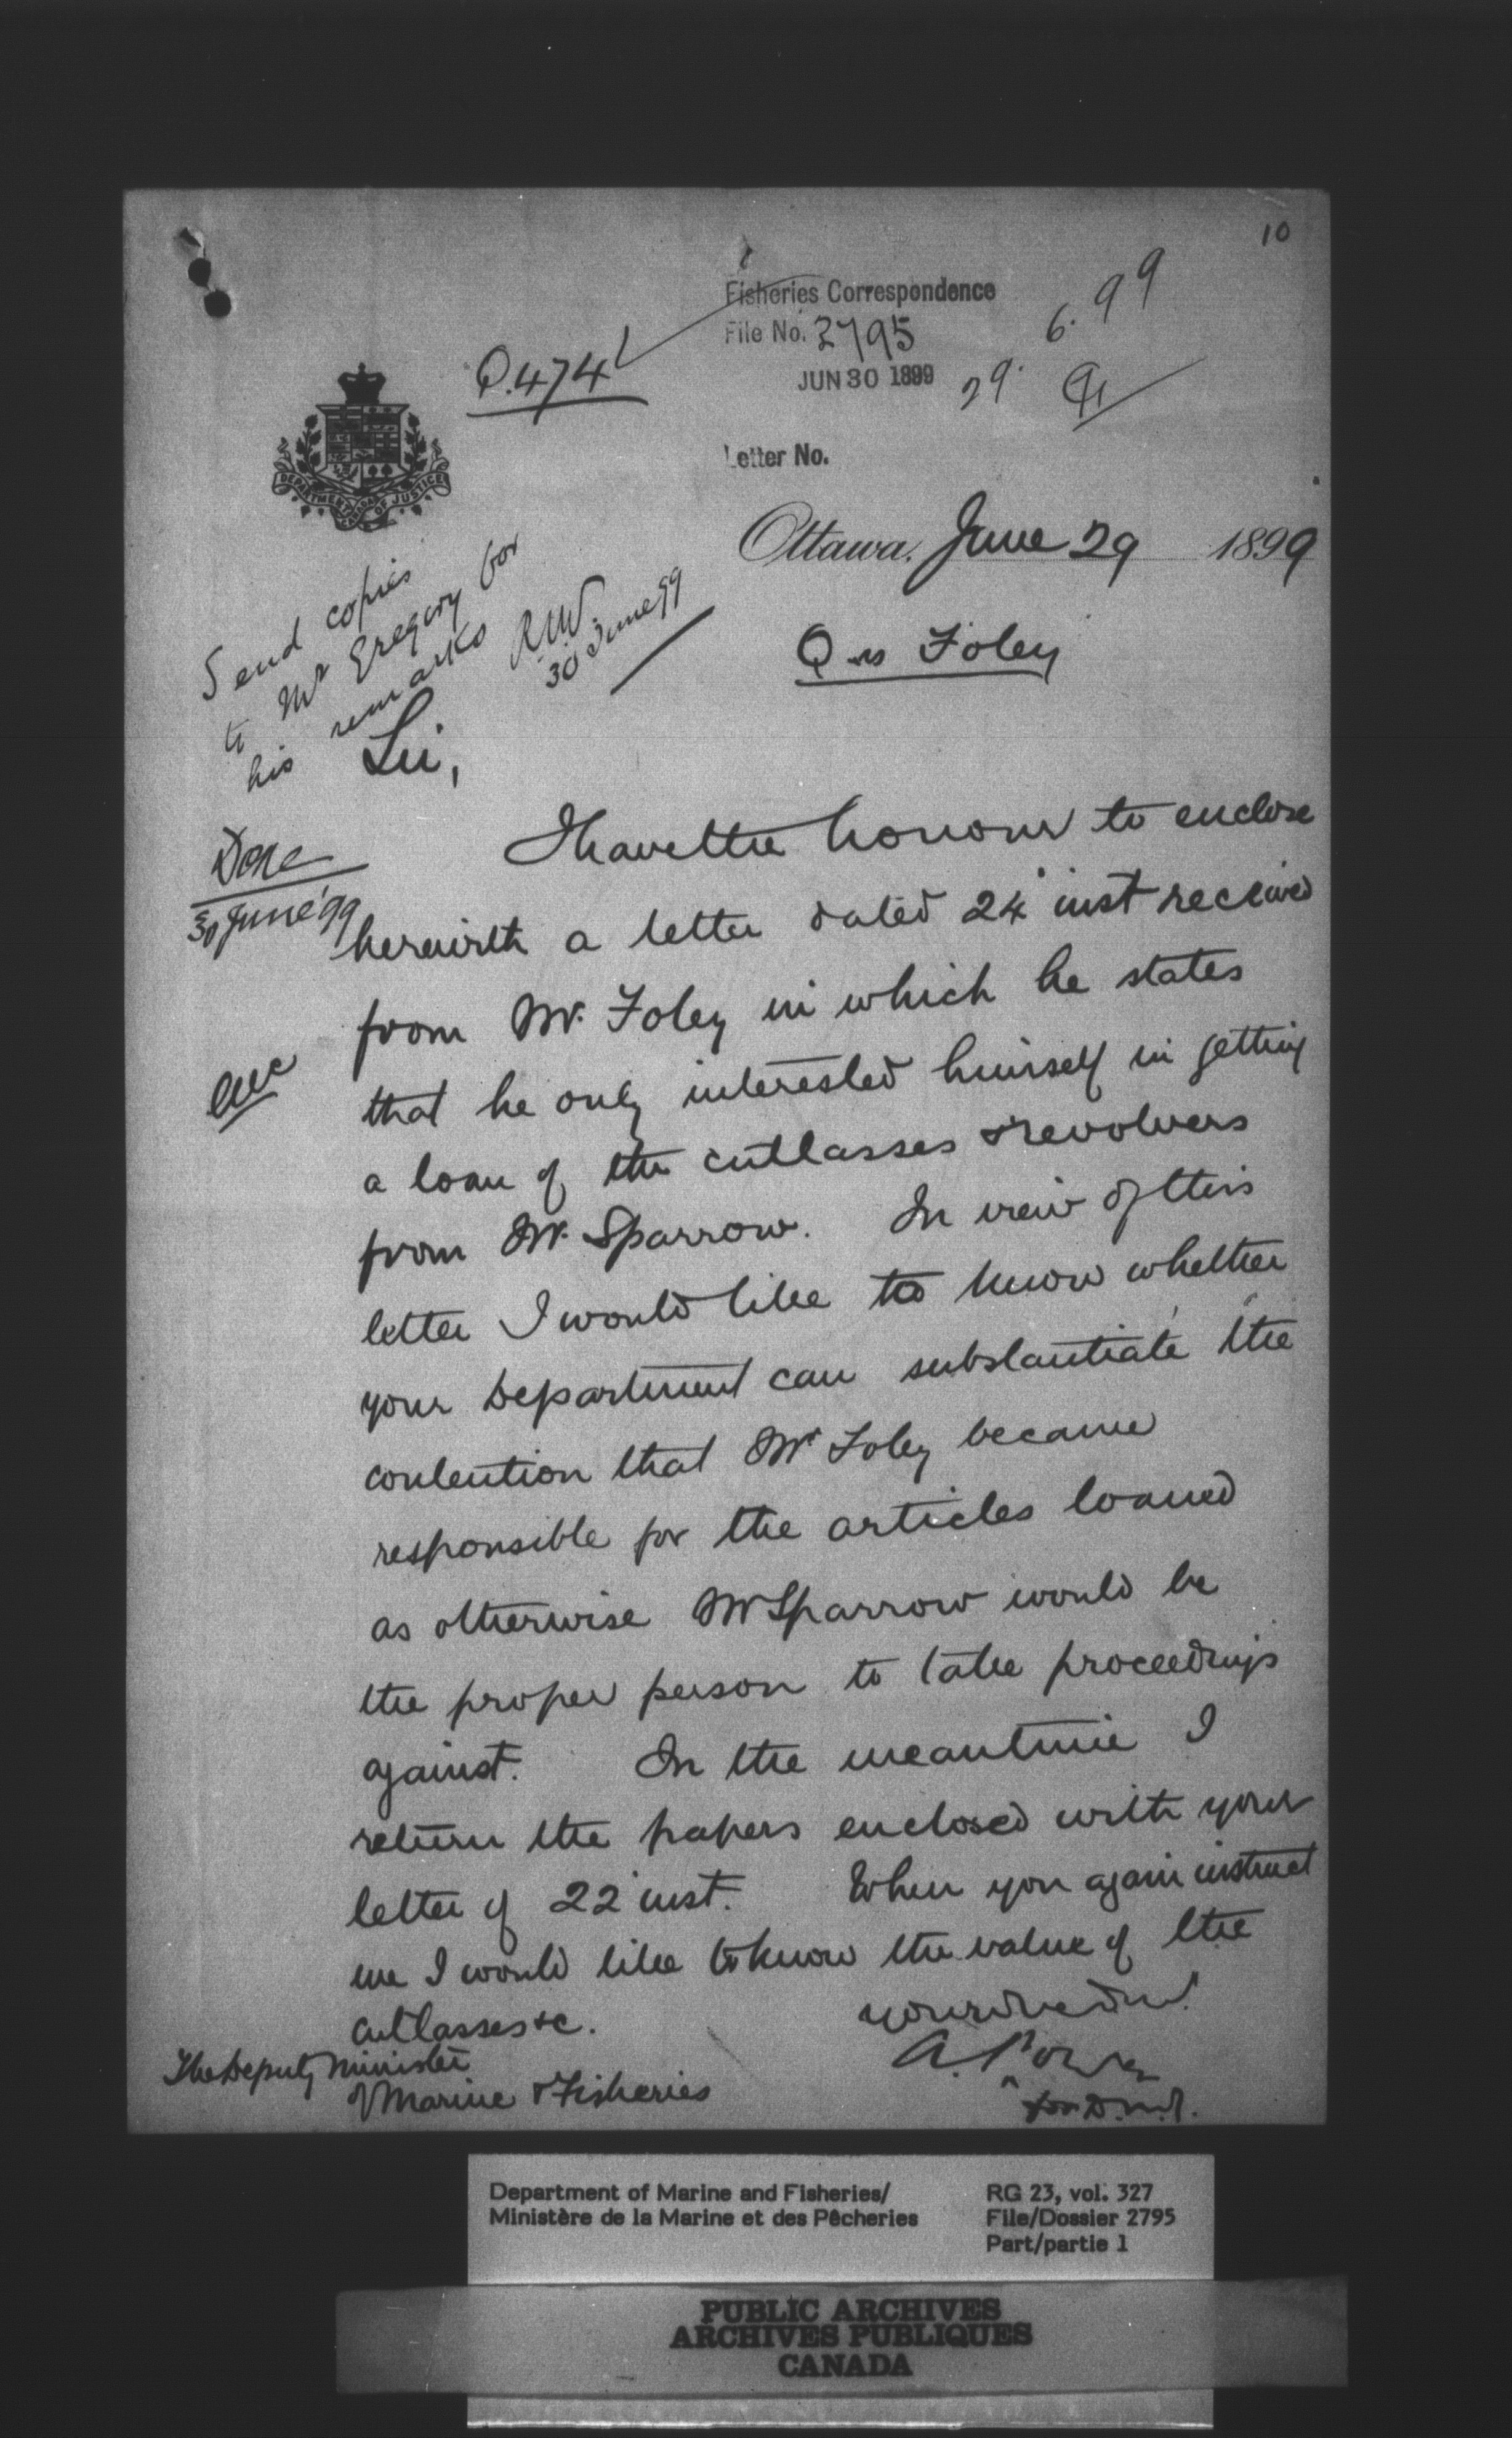 10
Fisheries Correspondence
File No. 2795
JUN 30 1899
29. 6. 99
Q. 474
Letter No.
DEPARTMENT OF JUSTICE
CANADA
Ottawa, June 29 1899
Q vs Foley
Send copies
to Mr Gregory for
his remarks R.W.
30 June 99
Sir,
Done
30 June '99
I have the honour to enclose
herewith a letter dated 24 inst received
from Mr. Foley in which he states
that he only interested himself in getting
a loan of the cutlasses & revolvers
from Mr. Sparrow. In view of this
letter I would like to know whether
your Department can substantiate the
contention that Mr Foley became
responsible for the articles loaned
as otherwise Mr Sparrow would be
the proper person to take proceedings
against. In the meantime I
return the papers enclosed with your
letter of 22 inst. When you again instruct
me I would like to know the value of the
cutlasses &c.
A. Power
for D.M.J.
The Deputy Minister
of Marine & Fisheries
Department of Marine and Fisheries/
Ministère de la Marine et des Pêcheries
RG 23, vol. 327
File/Dossier 2795
Part/partie 1
PUBLIC ARCHIVES
ARCHIVES PUBLIQUES
CANADA